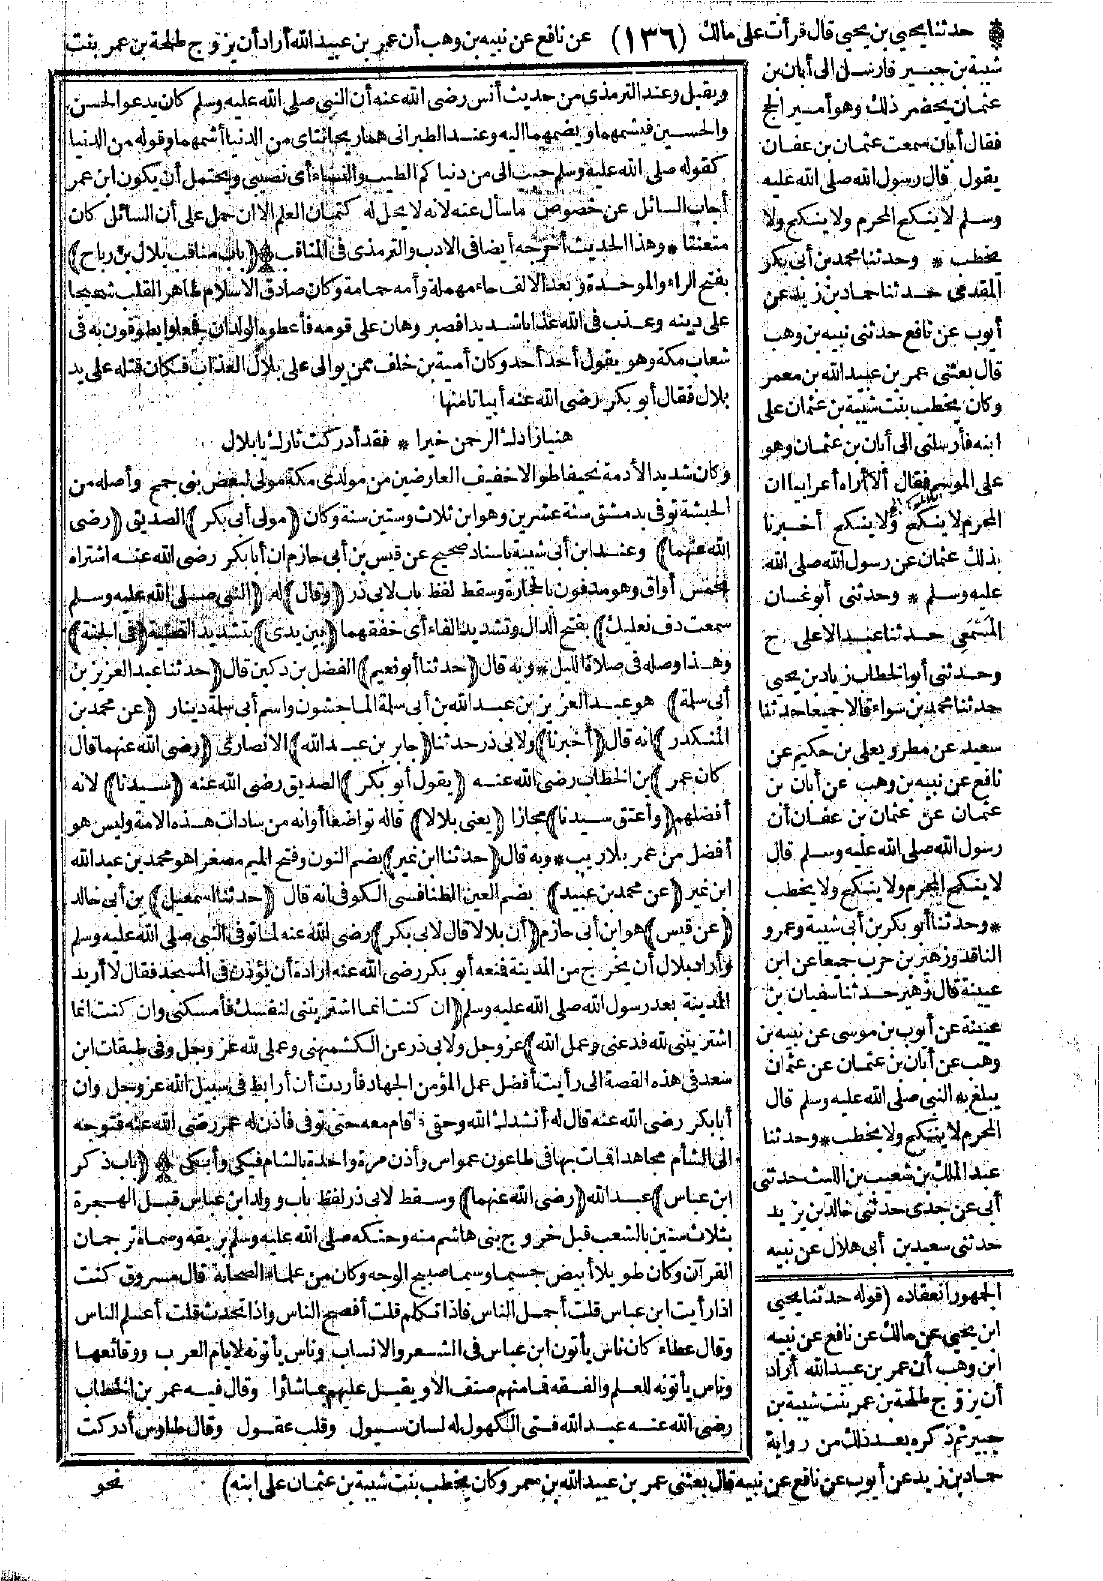 حدثنا يحيى بن يحيى قال قرأت على مالك (١٣٦) عن نافع عن نبيه بن وهب أن عمر بن عبيد الله أراد أن يزوج طلحة بن عمر بنت
شيبة بن جبير فأرسل الى أبان بن
عثمان يحضر ذلك وهو أمير الحج
فقال أبان سمعت عثمان بن عفان
يقول قال رسول الله صلى الله عليه
وسلم لا ينكح المحرم ولا ينكح ولا
يخطب * وحدثنا محمد بن أبي بكر
المقدمى حدثنا حماد بن زيد عن
أيوب عن نافع حدثنى نبيه بن وهب
قال بعثنى عمر بن عبيد الله بن معمر
وكان يخطب بنت شيبة بن عثمان على
ابنه فأرسلنى الى أبان بن عثمان وهو
على الموسم فقال ألا أراه أعرابيا ان
المحرم لا ينكح ولا ينكح أخبرنا
بذلك عثمان عن رسول الله صلى الله
عليه وسلم * وحدثنى أبو غسان
المسمعى حدثنا عبد الاعلى ح
وحدثنى أبو الخطاب زياد بن يحيى
حدثنا محمد بن سواء قالا جميعا حدثنا
سعيد عن مطر ويعلى بن حكيم عن
نافع عن نبيه بن وهب عن أبان بن
عثمان عن عثمان بن عفان أن
رسول الله صلى الله عليه وسلم قال
لا ينكح المحرم ولا ينكح ولا يخطب
* وحدثنا أبو بكر بن أبى شيبة وعمرو
الناقد وزهير بن حرب جميعا عن ابن
عيينة قال زهير حدثنا سفيان بن
عيينة عن أيوب بن موسى عن نبيه بن
وهب عن أبان بن عثمان عن عثمان
يبلغ به النبي صلى الله عليه وسلم قال
المحرم لا ينكح ولا يخطب * وحدثنا
عبد الملك بن شعيب بن الليث حدثنى
أبى عن جدى حدثنى خالد بن يزيد
حدثنى سعيد بن أبى هلال عن نبيه
الجمهور انعقاده (قوله حدثنا يحيى
ابن يحيى عن مالك عن نافع عن نبيه
ابن وهب أن عمر بن عبد الله أراد
أن يزوج طلحة بن عمر بنت شيبة بن
جبير ثم ذكره بعد ذلك من رواية
حماد بن زيد عن أيوب عن نافع عن نبيه قال بعثنى عمر بن عبيد الله بن معمر وكان يخطب بنت شيبة بن عثمان على ابنه)
ويقبل وعند الترمذى من حديث أنس رضى الله عنه أن النبى صلى الله عليه وسلم كان يدعو الحسن
والحسين فيشمهما ويضمهما اليه وعند الطبرانى هما ريحانتاى من الدنيا أشمهما وقوله من الدنيا
كقوله صلى الله عليه وسلم حبب الى من دنياكم الطيب والنساء أى نصيبى ويحتمل أن يكون ابن عمر
أجاب السائل عن خصوص ما سأل عنه لانه لا يحل له كتمان العلم الا ان حمل على أن السائل كان
متعنتا * وهذا الحديث أخرجه أيضا فى الادب والترمذى فى المناقب * (باب مناقب بلال بن رباح)
بفتح الراء والموحدة وبعد الالف حاء مهملة وأمه حمامة وكان صادق الاسلام طاهر القلب شحيحا
على دينه وعذب فى الله عذابا شديدا فصبر وهان على قومه فأعطوه الولدان فجعلوا يطوفون به فى
شعاب مكة وهو يقول أحد أحد وكان أمية بن خلف ممن يوالى على بلال العذاب فكان قتله على يد
بلال فقال أبو بكر رضى الله عنه أبياتا منها
هنيأ زادك الرحمن خيرا * فقد أدركت ثارك يا بلال
وكان شديد الأدمة نحيفا طوالا خفيف العارضين من مولدى مكة مولى لبعض بنى جمح وأصله من
الحبشة توفى بدمشق سنة عشرين وهو ابن ثلاث وستين سنة وكان (مولى أبى بكر) الصديق (رضى
الله عنهما) وعند ابن أبى شيبة باسناد صحيح عن قيس بن أبى حازم ان أبا بكر رضى الله عنه اشتراه
بخمس أواق وهو مدفون بالحجارة وسقط لفظ باب لابى ذر (وقال) له (النبى صلى الله عليه وسلم
سمعت دف نعليك) بفتح الدال وتشديد الفاء أى خفقهما (بين يدى) بتشديد التحتية (فى الجنة)
وهذا وصله فى صلاة الليل * وبه قال (حدثنا أبو نعيم) الفضل بن دكين قال (حدثنا عبد العزيز بن
أبى سلمة) هو عبد العزيز بن عبد الله بن أبى سلمة الماجشون واسم أبى سلمة دينار (عن محمد بن
المنكدر) انه قال (أخبرنا) ولابى ذر حدثنا (جابر بن عبد الله) الانصارى (رضى الله عنهما قال
كان عمر) بن الخطاب رضى الله عنه (يقول أبو بكر) الصديق رضى الله عنه (سيدنا) لانه
أفضلهم (وأعتق سيدنا) مجازا (يعنى بلالا) قاله تواضعا أو انه من سادات هذه الامة وليس هو
أفضل من عمر بلا ريب * وبه قال (حدثنا ابن نمير) بضم النون وفتح الميم مصغرا هو محمد بن عبد الله
ابن نمير (عن محمد بن عبيد) بضم العين الطنافسى الكوفى انه قال (حدثنا اسمعيل) بن أبى خالد
(عن قيس) هو ابن أبى حازم (أن بلالا قال لابى بكر) رضى الله عنه لما توفى النبى صلى الله عليه وسلم
وأراد بلال أن يخرج من المدينة فمنعه أبو بكر رضى الله عنه ارادة أن يؤذن فى المسجد فقال لا أريد
المدينة بعد رسول الله صلى الله عليه وسلم (ان كنت انما اشتريتنى لنفسك فأمسكنى وان كنت انما
اشتريتنى لله فدعنى وعمل الله) عز وجل ولابى ذر عن الكشميهنى وعملى لله عز وجل وفى طبقات ابن
سعد فى هذه القصة انى رأيت أفضل عمل المؤمن الجهاد فأردت أن أرابط فى سبيل الله عز وجل وان
أبا بكر رضى الله عنه قال له أنشدك الله وحقى فأقام معه حتى توفى فأذن له عمر رضى الله عنه فتوجه
الى الشأم مجاهدا فمات بها فى طاعون عمواس وأذن مرة واحدة بالشام فبكى وأبكى * (باب ذكر
ابن عباس) عبد الله (رضى الله عنهما) وسقط لابى ذر لفظ باب وولد ابن عباس قبل الهجرة
بثلاث سنين بالشعب قبل خروج بنى هاشم منه وحنكه صلى الله عليه وسلم بريقه وسماه ترجمان
القرآن وكان طويلا أبيض جسيما وسيما صبيح الوجه وكان من علماء الصحابة قال مسروق كنت
اذا رأيت ابن عباس قلت أجمل الناس فاذا تكلم قلت أفصح الناس واذا تحدث قلت أعلم الناس
وقال عطاء كان ناس يأتون ابن عباس فى الشعر والانساب وناس يأتونه لايام العرب ووقائعها
وناس يأتونه للعلم والفقه فما منهم صنف الا ويقبل عليهم بما شاؤا وقال فيه عمر بن الخطاب
رضى الله عنه عبد الله فتى الكهول له لسان سؤول وقلب عقول وقال طاوس أدركت
نحو